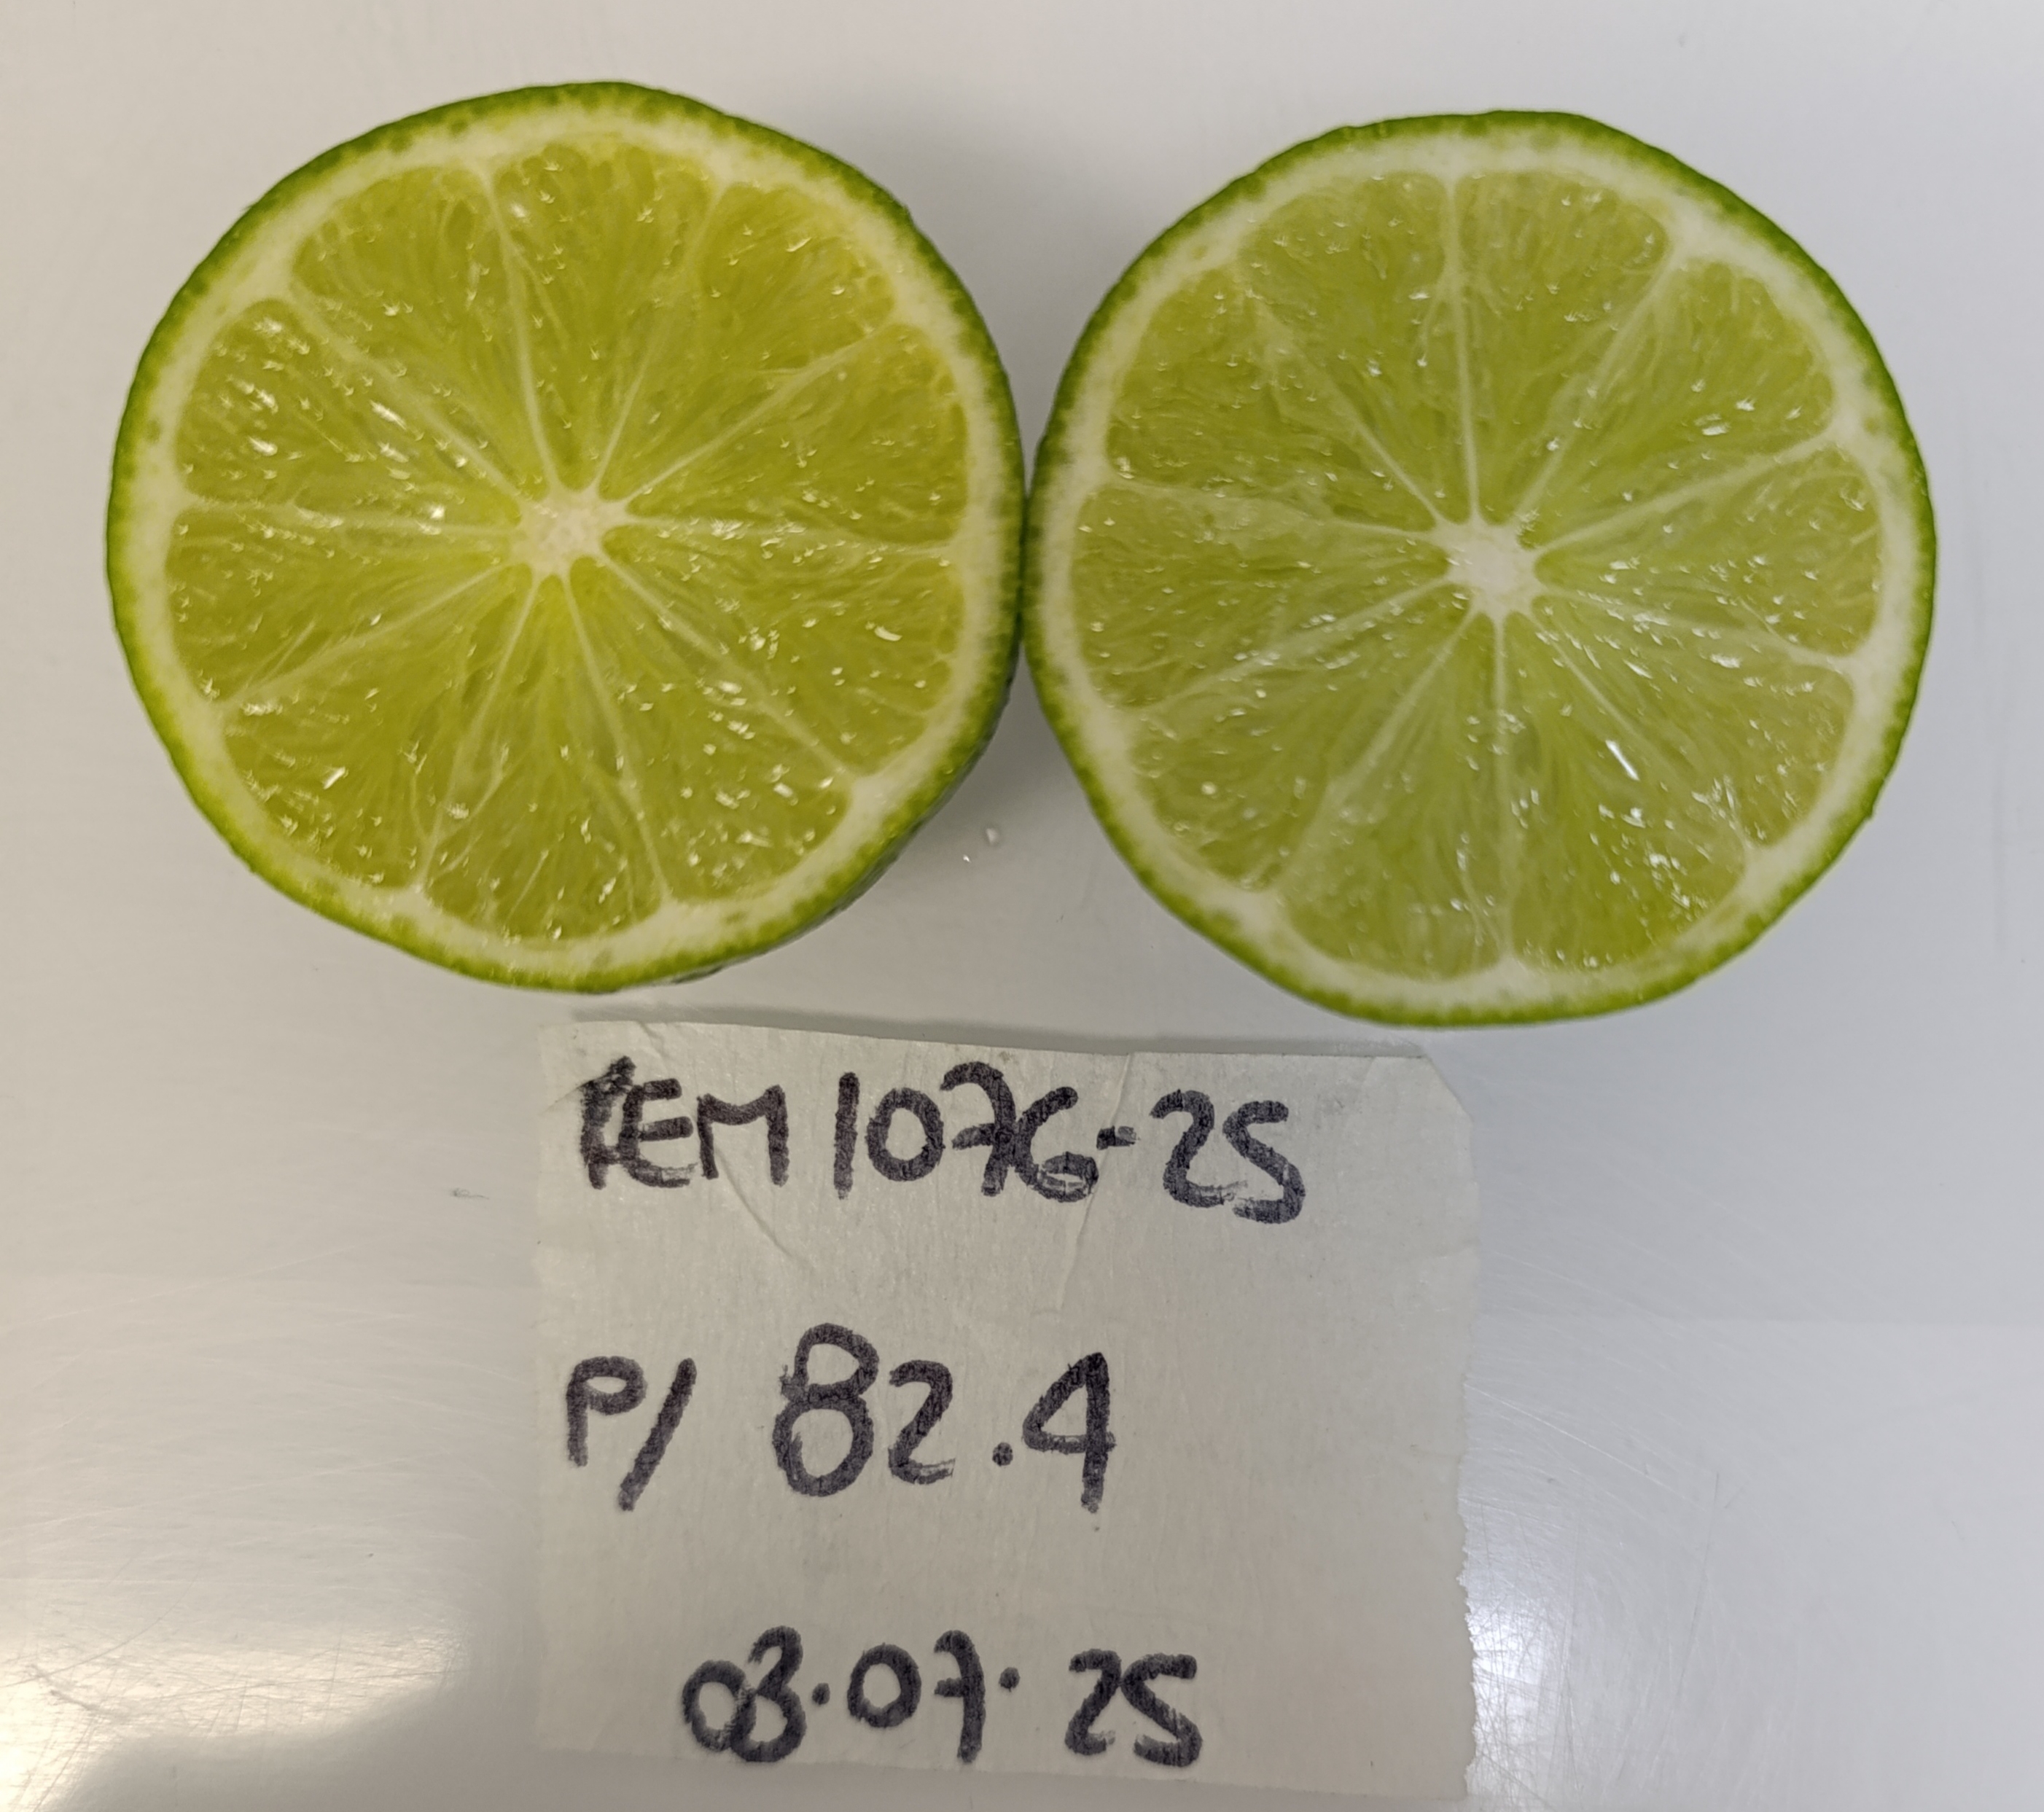 REM 1076-25
P/ 82.4
03.07.25